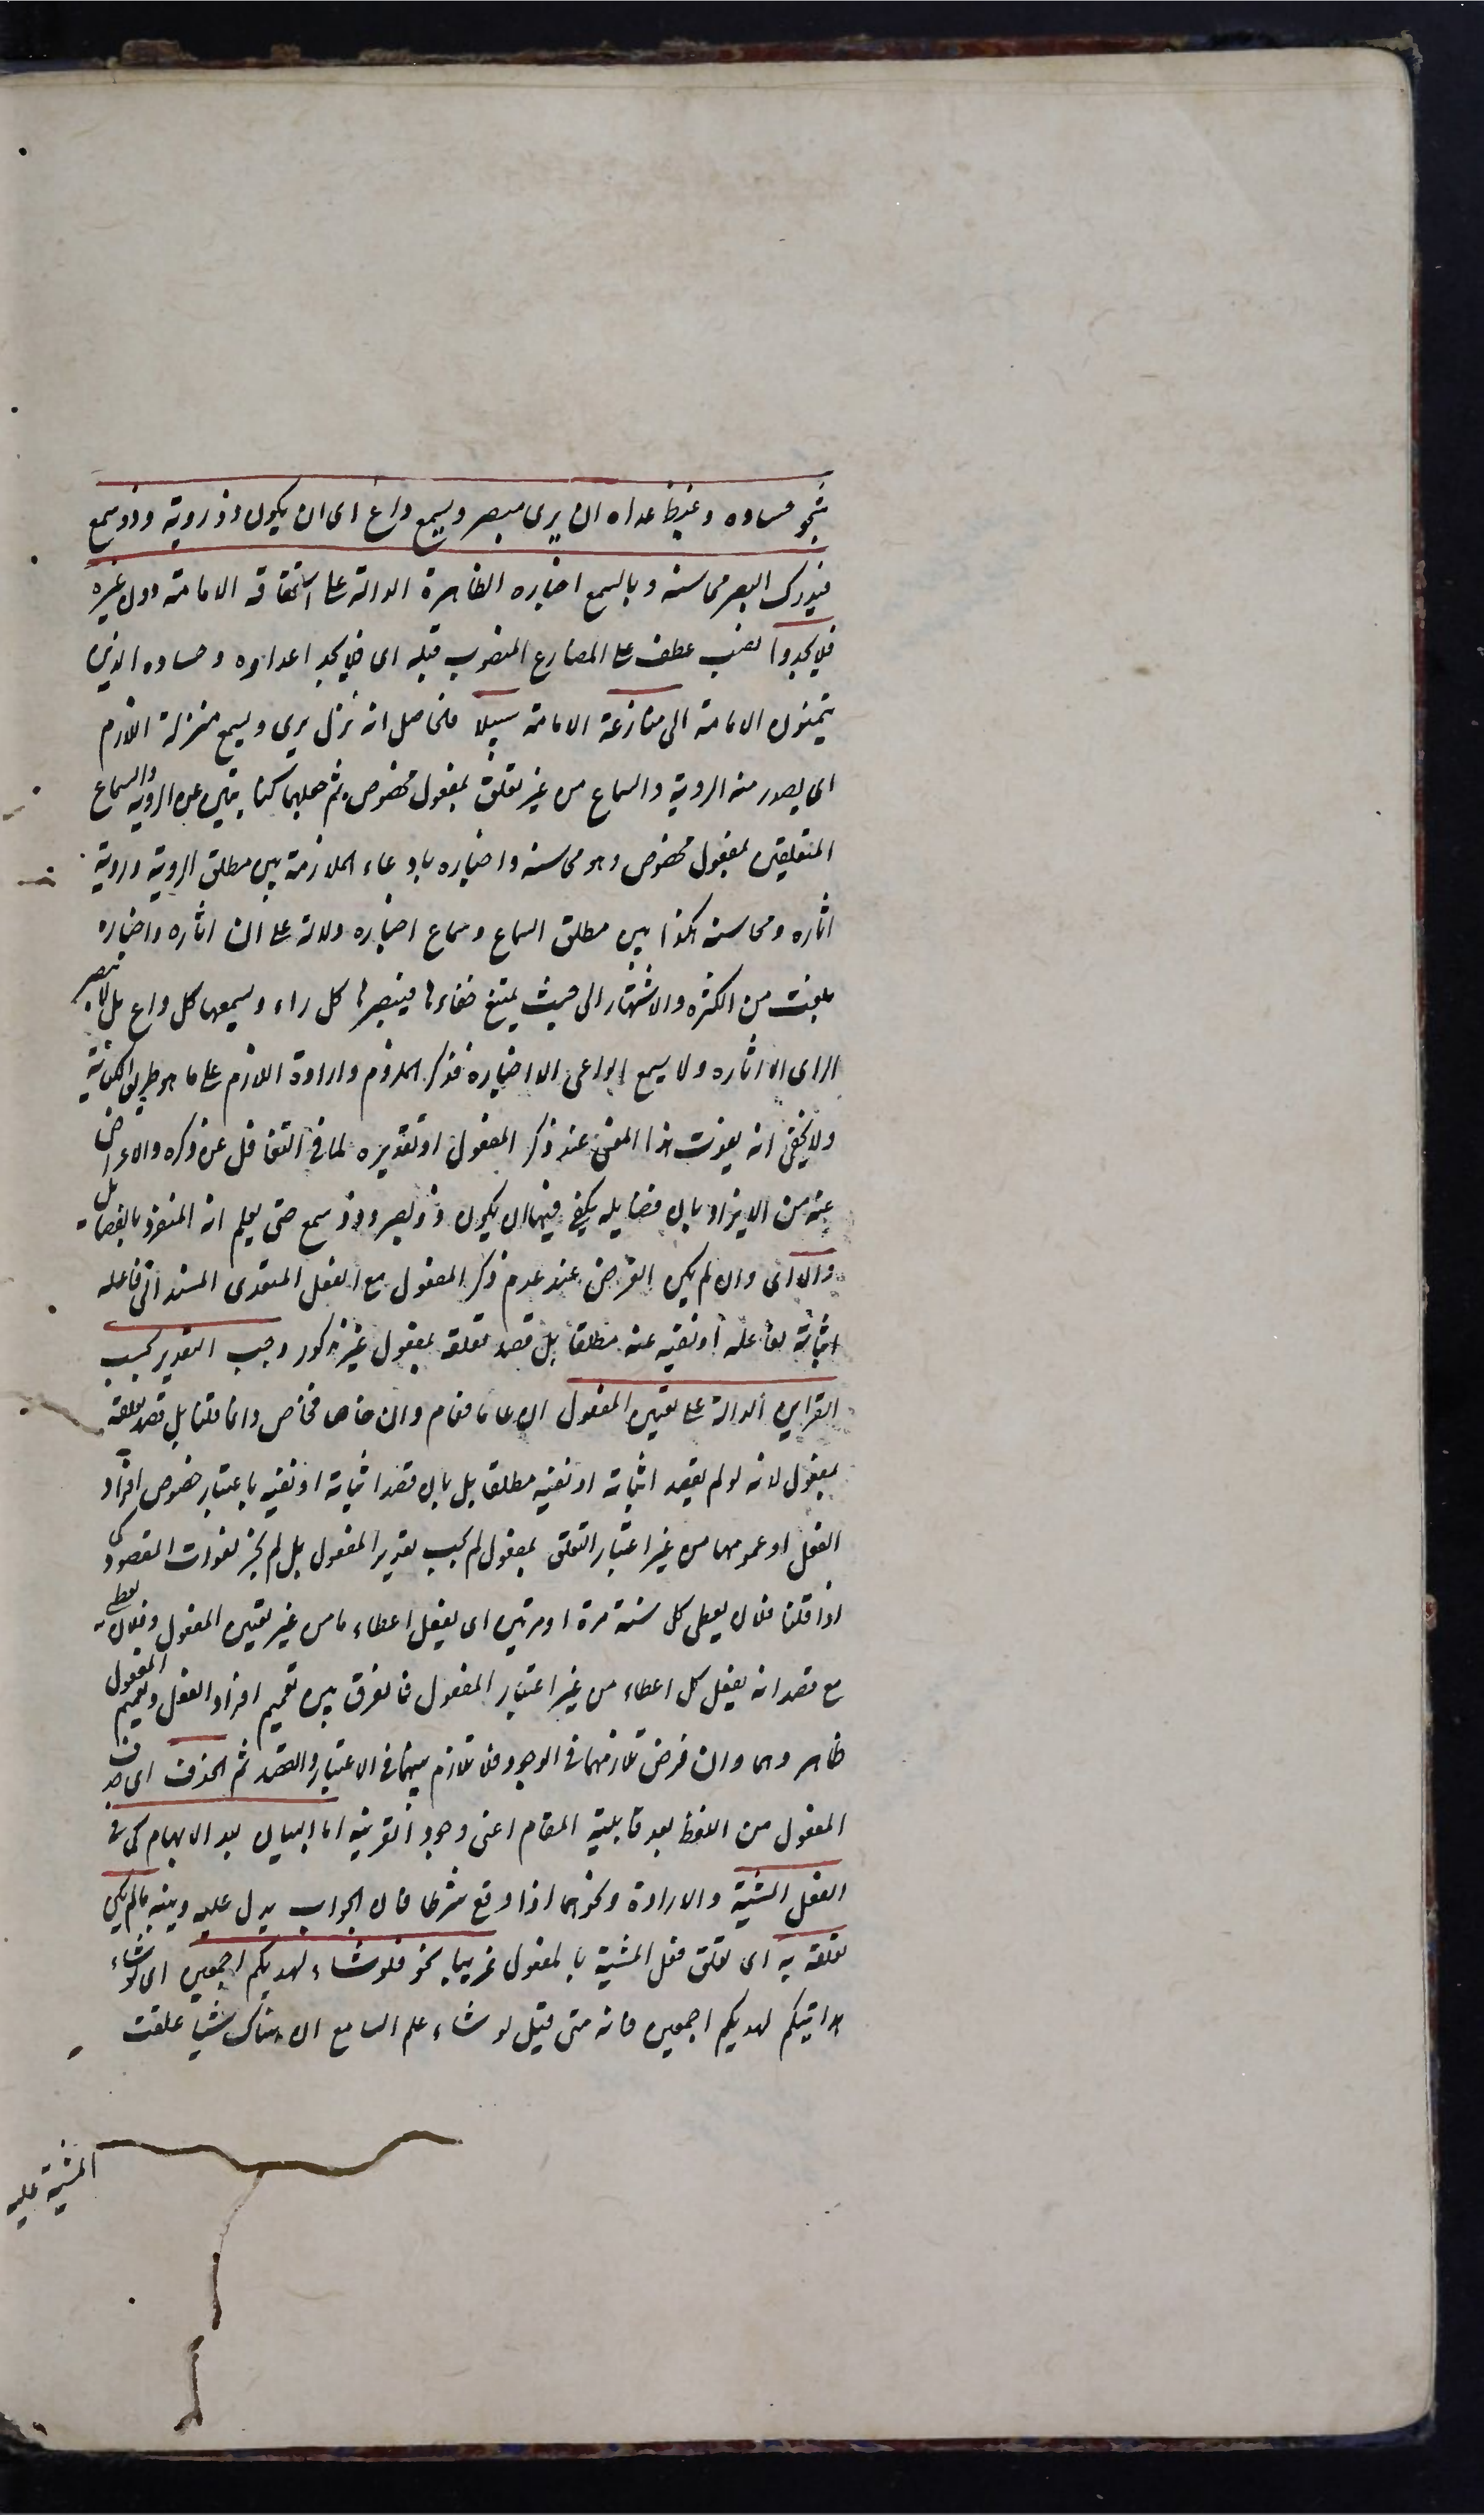 شجو حساده وغيظ عداه ان يرى مبصر ويسمع واع اى ان يكون ذو روية وذو سمع
فيدرك البصر محاسنه وبالسمع اخباره الظاهرة الدالة على استحقاقه الامامة دون غيره
فلا يجدوا نصب عطف على المضارع المنصوب قبله اى فلا يجد اعداؤه وحساده الذين
يتمنون الامامة الى منازعة الامامة سبيلا فالحاصل انه نزل يرى ويسمع منزلة اللازم
اى يصدر منه الروية والسماع من غير تعلق بمفعول مخصوص ثم جعلهما كنايتين عن الروية والسماع
المتعلقين بمفعول مخصوص وهو محاسنه واخباره بادعاء الملازمة بين مطلق الروية وروية
اثاره ومحاسنه وكذا بين مطلق السماع وسماع اخباره دلالة على ان اثاره واخباره
بلغت من الكثرة والاشتهار الى حيث يمتنع خفاءها فيبصرها كل راء ويسمعها كل واع بل لا يبصر
الراى الا اثاره ولا يسمع الواعى الا اخباره فذكر الملزوم وارادة اللازم على ما هو طريق الكناية
ولا يخفى انه يفوت هذا المعنى عند ذكر المفعول او تقديره لما فى التغافل عن ذكره والاعراض
عنه من الايذان بان فضايله يكفى فيها ان يكون ذو بصر وذو سمع حتى يعلم انه المنفرد بالفضايل
والا اى وان لم يكن الغرض عند عدم ذكر المفعول مع الفعل المتعدى المسند الى فاعله
اثباته لفاعله او نفيه عنه مطلقا بل قصد تعلقه بمفعول غير مذكور وجب التقدير بحسب
القراين الدالة على تعيين المفعول ان عاما فعام وان خاصا فخاص وانما قلنا بل قصد تعلقه
بمفعول لانه لو لم يقصد اثباته او نفيه مطلقا بل بان قصد اثباته او نفيه باعتبار خصوص افراد
الفعل او عمومها من غير اعتبار التعلق بمفعول لم يجب تقدير المفعول بل لم يجز لفوات المقصود كما
اذا قلنا فلان يعطى كل سنة مرة او مرتين اى يفعل اعطاء ما من غير تعيين المفعول وفلان يعطى
مع قصد انه يفعل كل اعطاء من غير اعتبار المفعول فالفرق بين تعميم افراد الفعل وتعميم المفعول
ظاهر وهما وان فرض تلازمهما فى الوجود فلا تلازم بينهما فى الاعتبار والقصد ثم الحذف اى حذف
المفعول من اللفظ بعد قابلية المقام اعنى وجود القرينة اما للبيان بعد الابهام كما فى
الفعل المشية والارادة ونحوهما اذا وقع شرطا فان الجواب يدل عليه ويبينه ما لم يكن
تعلقه به اى تعلق فعل المشية بالمفعول غريبا نحو فلو شاء لهديكم اجمعين اى لو شاء
هدايتكم لهديكم اجمعين فانه متى قيل لو شاء علم السامع ان هناك شيا علقت
المشية عليه